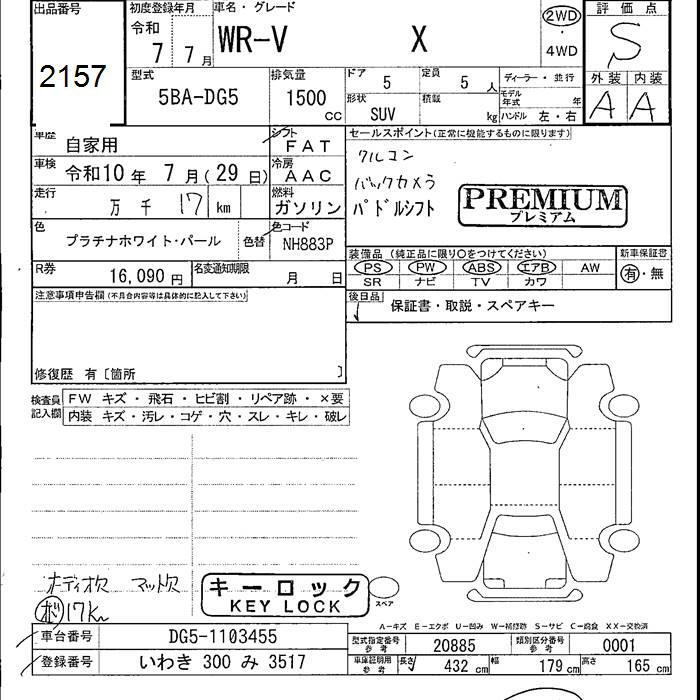 出品番号
2157
初度登録年月
令和
7 7月
車名・グレード
WR-V X
2WD
・
4WD
評価点
S
外装 内装
A A
型式
5BA-DG5
排気量
1500
cc
ドア
5
定員
5 人
形状
SUV
積載
kg
ディーラー・並行
モデル年式 年
ハンドル 左・右
車歴
自家用
シフト
FAT
車検
令和10年 7月(29日)
冷房
AAC
走行
万 千 17 km
燃料
ガソリン
色
プラチナホワイト・パール
色替
色コード
NH883P
R券
16,090円
名変通知期限
月 日
セールスポイント(正常に機能するものに限ります)
クルコン
バックカメラ
パドルシフト
PREMIUM
プレミアム
装備品 (純正品に限り○をつけてください)
PS PW ABS エアB AW
SR ナビ TV カワ
新車保証書
有・無
後日品
保証書・取説・スペアキー
注意事項申告欄(不具合内容等は具体的に記入して下さい)
修復歴 有〔箇所 〕
検査員
記入欄
FW キズ・飛石・ヒビ割・リペア跡・×要
内装 キズ・汚レ・コゲ・穴・スレ・キレ・破レ
オーディオ欠 マット欠
17km
キーロック
KEY LOCK
スペア
A-キズ E-エクボ U-凹み W-補修跡 S-サビ C-腐食 XX-交換済
車台番号
DG5-1103455
登録番号
いわき 300 み 3517
型式指定番号
参考
20885
類別区分番号
参考
0001
車庫証明用
参考
長さ 432 cm 幅 179 cm 高さ 165 cm